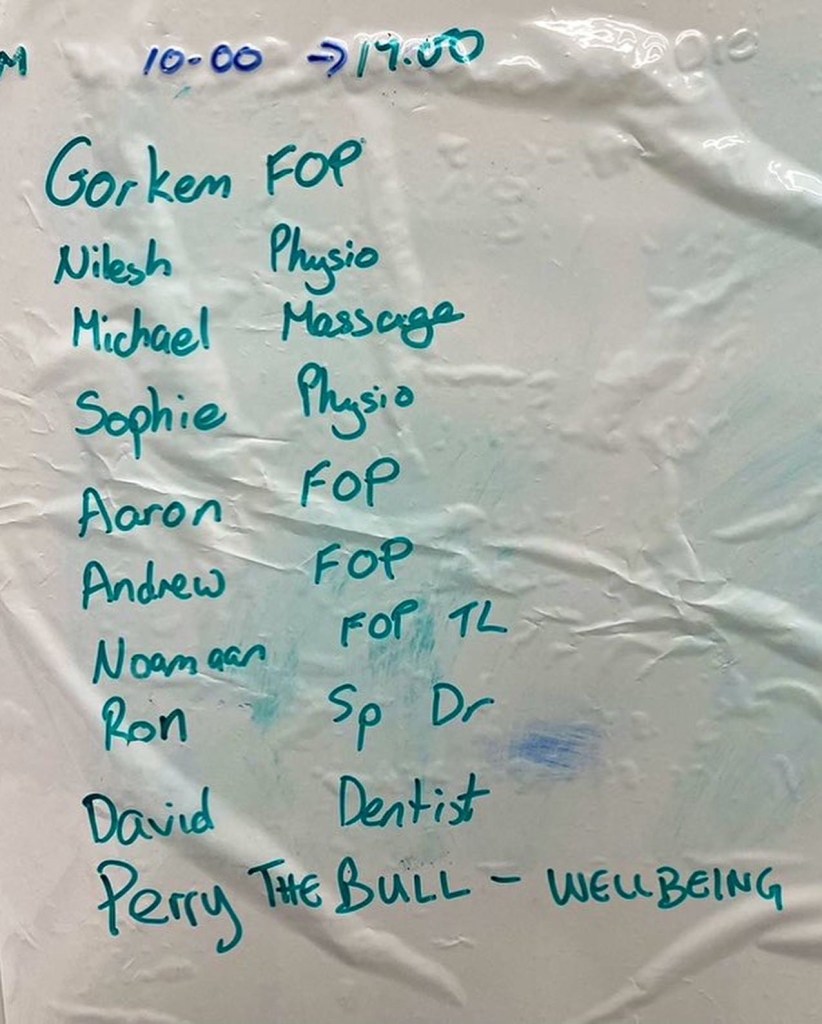 M 10-00 → 19.00
Gorkem FOP
Nilesh Physio
Michael Massage
Sophie Physio
Aaron FOP
Andrew FOP
Noamaan FOP TL
Ron Sp Dr
David Dentist
Perry THE BULL - WELLBEING